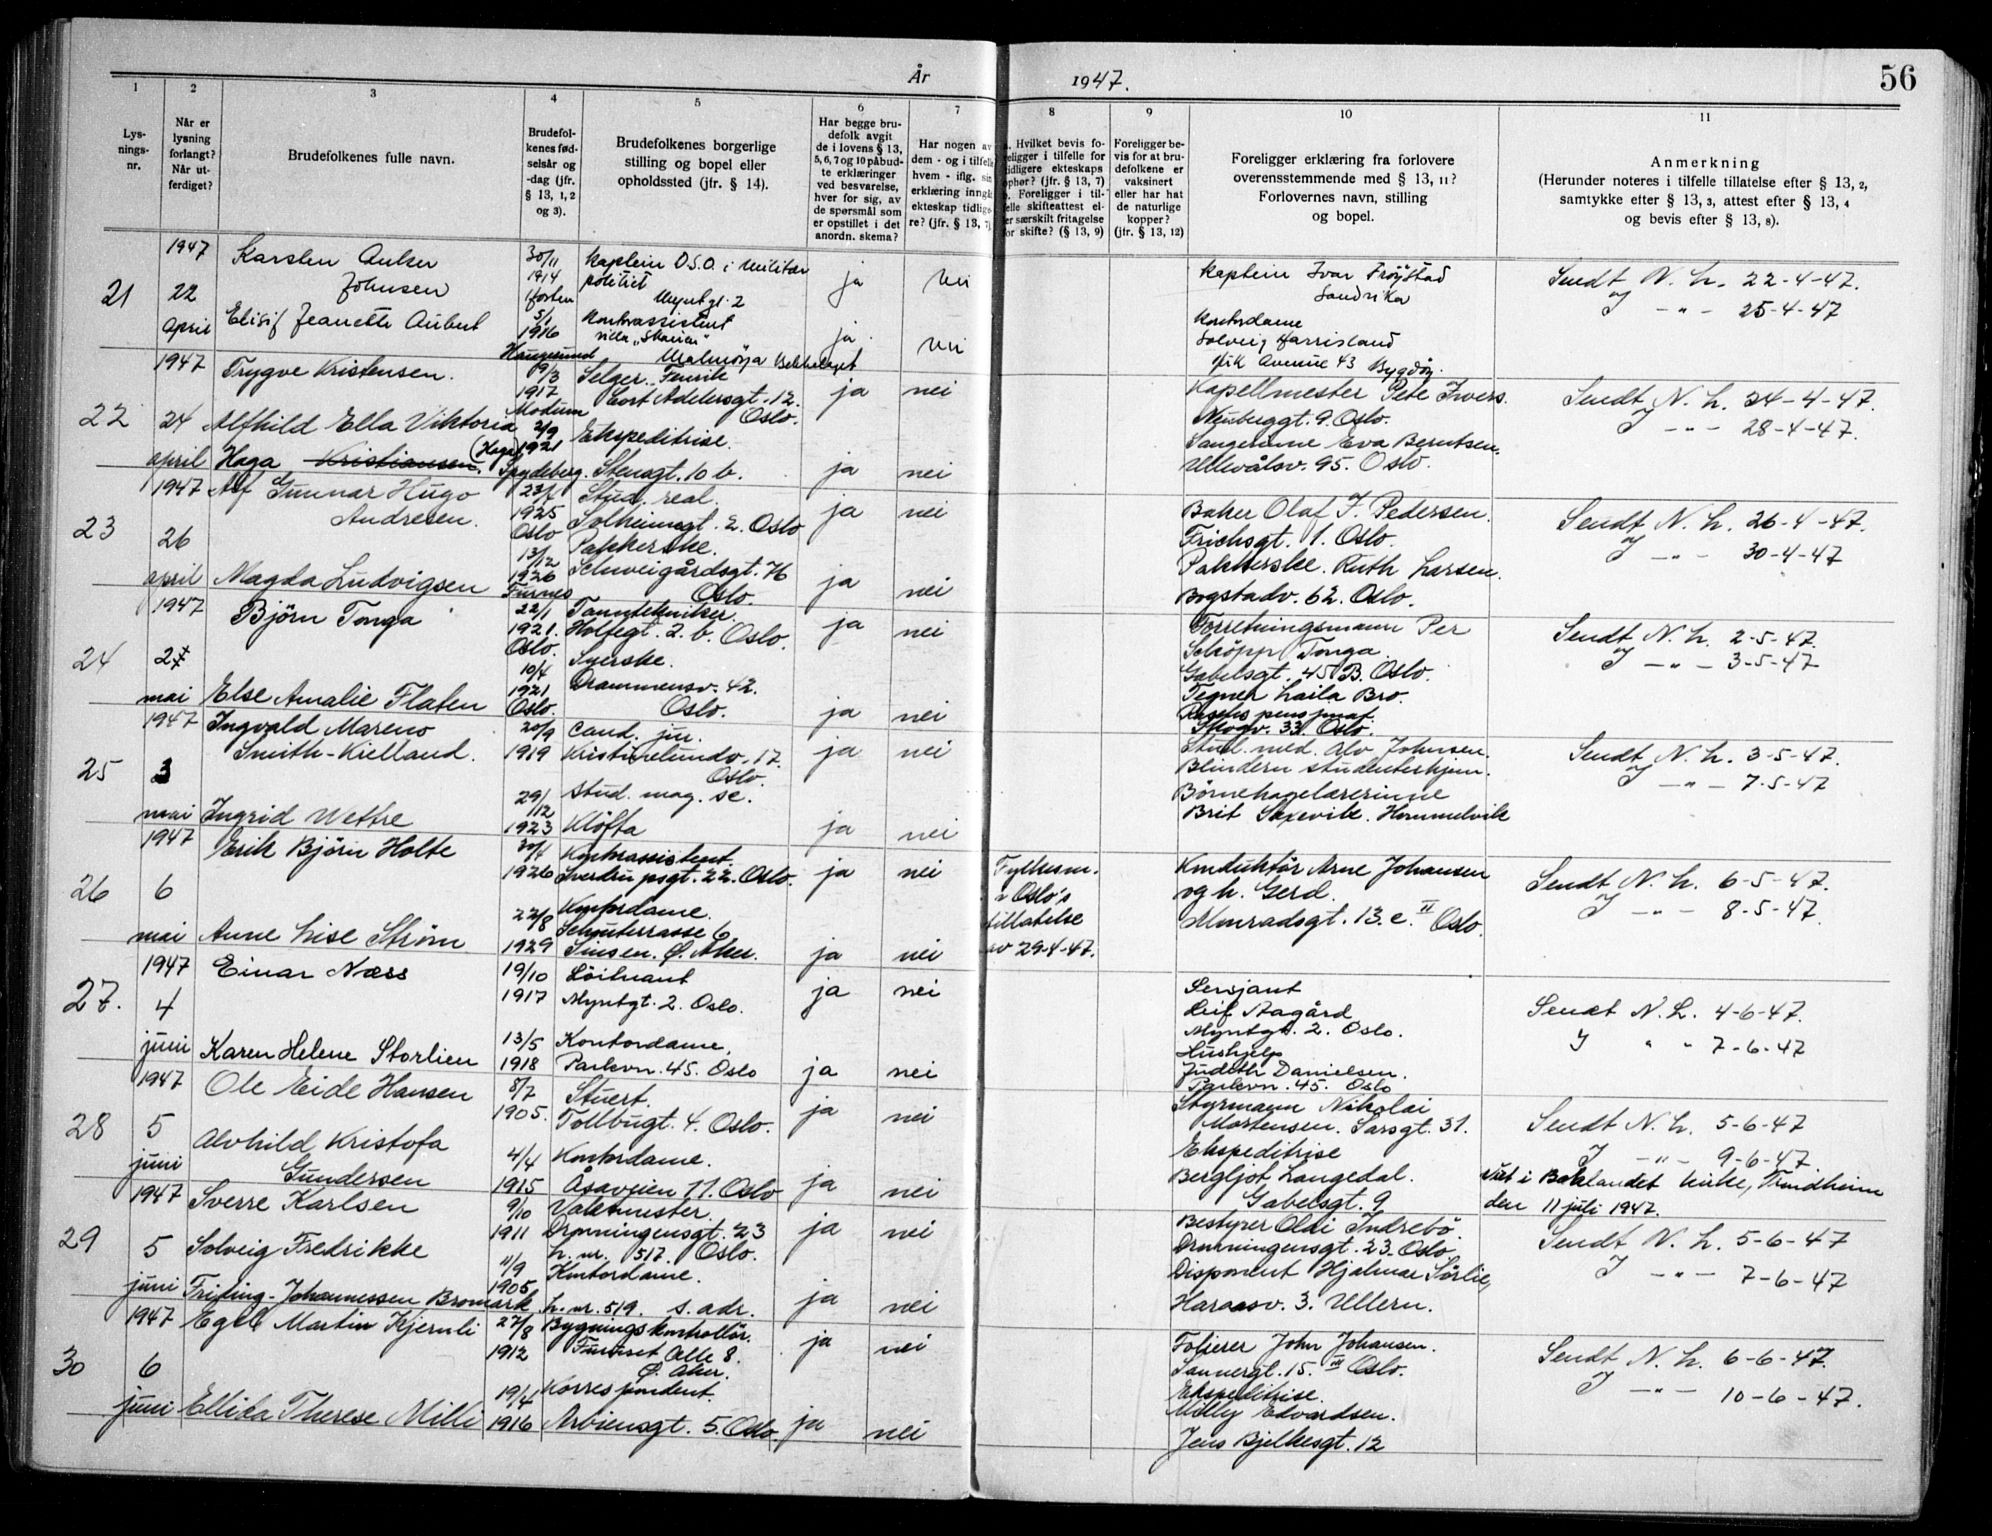 År 1947.
56
1 2 3 4 5 6 7 8 9 10 11
Lys-
nings-
nr.
Når er
lysning
forlangt?
Når ut-
ferdiget?
Brudefolkenes fulle navn.
Brudefol-
kenes fød-
selsår og
-dag (jfr.
§ 13, 1, 2
og 3).
Brudefolkenes borgerlige
stilling og bopel eller
opholdssted (jfr. § 14).
Har begge bru-
defolk avgit
de i lovens § 13,
5, 6, 7 og 10 påbud-
te erklæringer
ved besvarelse,
hver for sig, av
de spørsmål som
er opstillet i det
anordn. skema?
Har nogen av
dem - og i tilfelle
hvem - iflg. sin
erklæring inngåt
ekteskap tidlige-
re? (jfr. § 13, 7)
a. Hvilket bevis fo-
religger i tilfelle for
tidligere ekteskaps
ophør? (jfr. § 13, 7)
b. Foreligger i til-
felle skifteattest el-
ler særskilt fritagelse
for skifte? (§ 13, 9)
Foreligger be-
vis for at bru-
defolkene er
vaksinert
eller har hat
de naturlige
kopper?
(jfr. § 13, 12)
Foreligger erklæring fra forlovere
overensstemmende med § 13, 11?
Forlovernes navn, stilling
og bopel.
Anmerkning
(Herunder noteres i tilfelle tillatelse efter § 13, 2,
samtykke efter § 13, 3, attest efter § 13, 4
og bevis efter § 13, 8).
21
1947
22
april
Karsten Anker
Johnsen
30/11
1914
Kaptein D.S.O. i Militær
politiet
Myntgt. 2
ja
nei
Elisif Jeanette Aubert
5/1
1916
Haugesund
Kontorassistent
Villa „Skauen"
Malmøya Bekkelaget
ja
nei
Kaptein Ivar Frøystad
Sandvika
Kontordame
Solveig Harrisland
Avenue 43 Bygdøy.
Sendt N. L. 22-4-47.
og J — " — 25-4-47
22
1947
24
april
Trygve Kristensen.
19/3
1917
Modum
Selger. Fenrik
Cort Adelersgt. 12.
Oslo.
ja
nei
Alfhild Ella Viktoria
Haga Kristiansen. (Haga)
2/9
1921
Spydeberg.
Ekspeditrise.
Stensgt. 10 b.
ja
nei
Kapellmester Pete Ivers.
Neubergt. 9. Oslo.
Sangerinne Eva Berntsen.
Ullevålsv. 95. Oslo.
Sendt N. L. 24-4-47.
J — " — 28-4-47.
23
1947
26
april
Alf Gunnar Hugo
Andresen.
1925
Oslo
Stud. real.
Solheimsgt. 2. Oslo
ja
nei
Magda Ludvigsen
13/12
1926
Furnes
Pakkerske.
Schweigårdsgt. 76
Oslo.
ja
nei
Baker Olaf J. Pedersen.
Frichsgt. 1. Oslo.
Pakkerske. Ruth Larsen.
Bogstadv. 62. Oslo.
Sendt N. L. 26-4-47.
og J — " — 30-4-47
24
1947
2
mai
Bjørn Tonga
22/1
1921.
Oslo.
Tanntekniker.
Holfegt. 2. b. Oslo.
ja
nei
Else Amalie Flaten
10/4
1921
Oslo.
Syerske.
Drammensv. 42.
Oslo.
ja
nei
Forretningsmann Per
Schöpp Tonga.
Gabelsgt. 45 B. Oslo.
Tegner Laila Bro.
Raschs pensjonat.
Skogv. 33. Oslo.
Sendt N. L. 2-5-47.
J — " — 3-5-47
25
1947
3
mai
Ingvald Mareno
Smith-Kielland.
20/9
1919
Cand. jur.
Kristinelundv. 17.
Oslo.
ja
nei
Ingrid Wettre
29/12
1923
stud. mag. sc.
Kløfta
ja
nei
Stud. med. Alv Johnsen.
Blindern studenterhjem.
Børnehagelærerinne
Brit Saxevik. Hommelvik
Sendt N. L. 3-5-47.
J — " — 7-5-47
26
1947
6
mai
Erik Bjørn Holte
30/4
1926
Kontorassistent.
Sverdrupsgt. 22. Oslo.
ja
nei
Fylkesm.
i Oslo's
tillatelse
av 29-4-47.
Anne Lise Strøm
22/8
1929
Kontordame.
Schouterrasse 6
Sinsen. Ø. Aker.
ja
nei
Konduktør Arne Johansen
og h. Gerd.
Konradsgt. 13. c. II Oslo.
Sendt N. L. 6-5-47.
J — " — 8-5-47.
27.
1947
4
juni
Einar Næss
19/10
1917
Løitnant
Myntgt. 2. Oslo.
ja
nei
Karen Helene Storlien
13/5
1918
Kontordame.
Parkvn. 45. Oslo
ja
nei
Sersjant
Leif Aagård
Myntgt. 2. Oslo.
Hushjelp
Judith Danielsen.
Parkvn. 45. Oslo
Sendt N. L. 4-6-47.
J " " 7-6-47
28
1947
5
juni
Ole Eide Hansen
8/7
1905.
Stuert.
Tollbugt. 4. Oslo.
ja
nei
Alvhild Kristofa
Gundersen
4/4
1915
Kontordame.
Åsaveien 11. Oslo
ja
nei
Styrmann Nikolai
Mortensen. Sarsgt. 31.
Ekspeditrise
Bergljot Langedal.
Gabelsgt. 9
Sendt N. L. 5-6-47
J — " — 9-6-47.
Viet i Baklandet kirke, Trondheim
den 11 juli 1947.
29
1947
5
juni
Sverre Karlsen
9/10
1911
Vaktmester.
Dronningensgt. 23
h. nr. 517. Oslo.
ja
nei
Solveig Fredrikke
Frisling-Johannessen Bromark
11/9
1905
Kontordame.
h. nr. 519. s. adr.
ja
nei
Bestyrer Olai Indrebø.
Dronningensgt. 23. Oslo
Disponent Hjalmar Sørlie,
Haraasv. 3. Ullern.
Sendt N. L. 5-6-47
J — " — 7-6-47
30
1947
6
juni
Egil Martin Kjernli
27/8
1912
Bygningskontrollør.
Furuset Alle 8.
Ø. Aker.
ja
nei
Ellika Therese Milli
19/4
1916
Korrespondent.
Arbiensgt. 5. Oslo.
ja
nei
Folierer John Johansen.
Sannergt. 15. III Oslo.
Ekspeditrise.
Milly Edvardsen.
Jens Bjelkesgt. 12
Sendt N. L. 6-6-47.
J — " — 10-6-47.